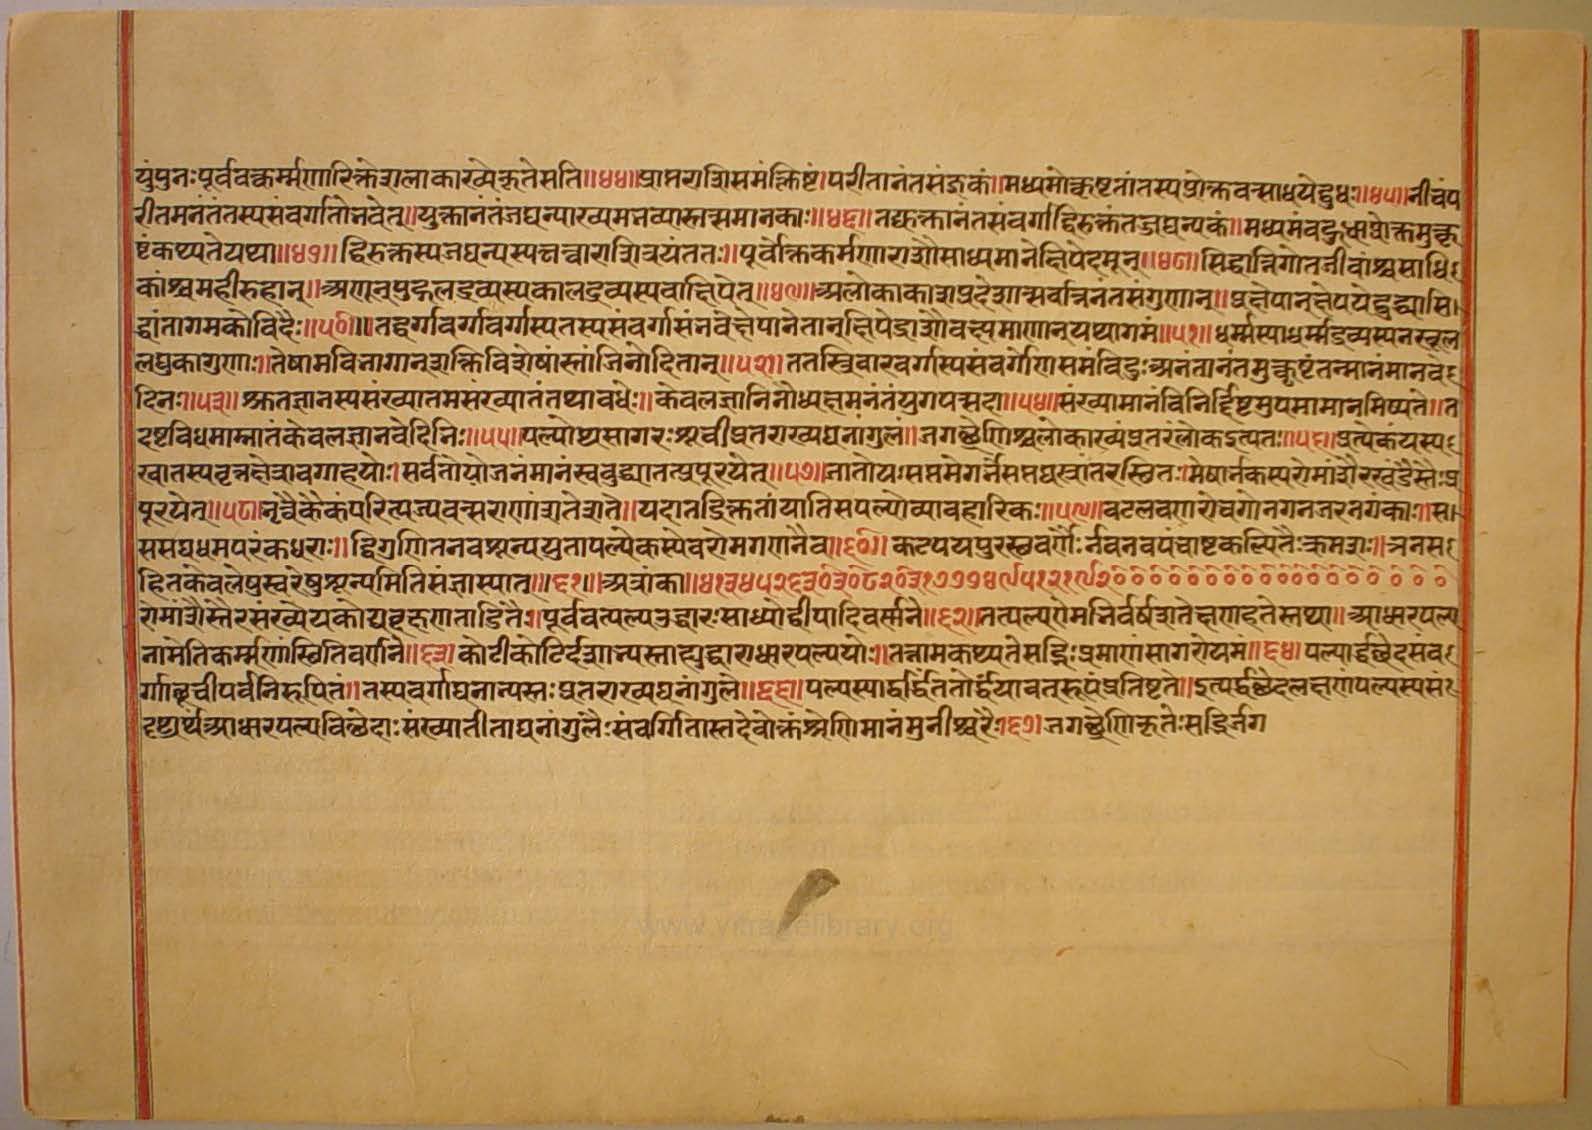 युंपुनःपूर्ववत्कर्म्मणारिक्तेशलाकाख्येकृतेसति॥४४॥प्राप्तराशिसमंक्लिष्टं।परीतानंतसंज्ञकं॥मध्यमोत्कृष्टतांतस्यप्रोक्तवत्साधयेद्बुधः॥४५॥नीचंप
रीतमनंतंतस्यसंवर्गतोभवेत्॥युक्तानंतंजघन्याख्यमभव्यास्तत्समानकाः॥४६॥तद्युक्तानंतसंवर्गाद्द्विरुक्तंतज्जघन्यकं॥मध्यमंबहुधाप्रोक्तमुत्कृ
ष्टंकथ्यतेयथा॥४७॥द्विरुक्तस्यजघन्यस्यचत्वाराशित्रयंततः॥पूर्वोक्तकर्मणाराशौसाध्यमानेक्षिपेदमून्॥४८॥सिद्धान्निगोतजीवांश्चसाधि
कांश्चमहीरुहान्॥अणून्पुद्गलद्रव्यस्यकालद्रव्यस्यवाक्षिपेत्॥४९॥अलोकाकाशप्रदेशान्सर्वान्ननंतसंगुणान्॥प्रक्षेपान्क्षेपयेद्बुद्ध्यासि
द्धांतागमकोविदैः॥५०॥तद्वर्गावर्गावर्गस्यतस्यसंवर्गसंभवेक्षेपानेतान्क्षिपेद्राशौवक्ष्यमाणान्यथागमं॥५१॥धर्म्मस्याधर्म्मद्रव्यस्यनस्थूल
लघुकागुणाः॥तेषामविभागान्शक्तिविशेषांस्तांजिनोदितान्॥५२॥ततस्त्रिवारवर्गस्यसंवर्गेणसमंविदुःअनंतानंतमुत्कृष्टंतन्मानंमानवे
दिनः॥५३॥श्रुतज्ञानस्यसंख्यातमसंख्यातंतथावधेः॥केवलज्ञानिनोध्यक्षमनंतंयुगपत्सदा॥५४॥संख्यामानंविनिर्द्दिष्टमुपमामानमिष्यते॥त
दष्टविधमाम्नातंकेवलज्ञानवेदिभिः॥५५॥पल्योथसागरःश्रूचीप्रतराख्यघनांगुलं॥जगच्छ्रेणिश्चलोकाख्यंप्रतरंलोकइत्यतः॥५६॥प्रत्येकंयस्य
खातस्यवृत्तक्षेत्रावगाहयोः।सर्वतोयोजनंमानंस्वबुद्ध्यातत्प्रपूरयेत्॥५७॥जातोयःसप्तमेगर्भेसप्तघस्त्रांतरस्थितः।मेषार्भकस्यरोमांशैरखंडैस्तैःप्र
पूरयेत्॥५८॥नृचैकैकंपरित्यज्यवत्सराणांशतेशते॥यदातद्रिक्ततांयातिसपल्योव्यावहारिकः॥५९॥वटलवणरोचगोनगनजरनगंकाः॥स
ससघधमपरंकधराः॥द्विगुणितनवश्रून्ययुतापल्येकस्येवरोमगणनैव॥६०॥कटपयपुरस्थवर्णैःर्नवनवपंचाष्टकल्पितैःक्रमशः॥ञनस
हितकेवलेषुस्वरेषुश्रून्यमितिसंज्ञास्यात्॥६१॥अत्रांका॥४१३४५२६३०३०८२०३१७७७४९५१२१९२००००००००००००००००००
रोमांशैस्तैरसंख्येयकोट्यब्दक्षणताडितैः॥पूर्ववत्पल्यउद्धारःसाध्योद्वीपादिवर्स्मने॥६२॥तत्पल्यरोमभिर्वर्षशतेक्षणहतेस्तथा॥आधारपल्य
नामेतिकर्म्मणांस्थितिवर्णने॥६३॥कोटीकोटिर्दशान्यस्ताह्युद्धाराधारपल्ययोः॥तन्नामकथ्यतेसद्भिःप्रमाणंसागरोयमं॥६४॥पल्यार्द्धच्छेदसंव
र्गाश्रूचीपर्वनिरूपितं॥तस्यवर्गाघनान्यस्तःप्रतराख्यघनांगुले॥६६॥पल्यस्याद्वर्द्धितितोर्द्धयावतरूपंप्रतिष्टते॥इत्यर्द्धच्छेदलक्षणंपल्यस्यसं
दृष्ट्यर्थआधारपल्यविच्छेदाःसंख्यातीताघनांगुलैःसंवर्गितास्तदेवोक्तंश्रेणिमानंमुनीश्वरैः॥६७॥जगच्छ्रेणिकृतेःसद्भिर्जग
www.vitragelibrary.org